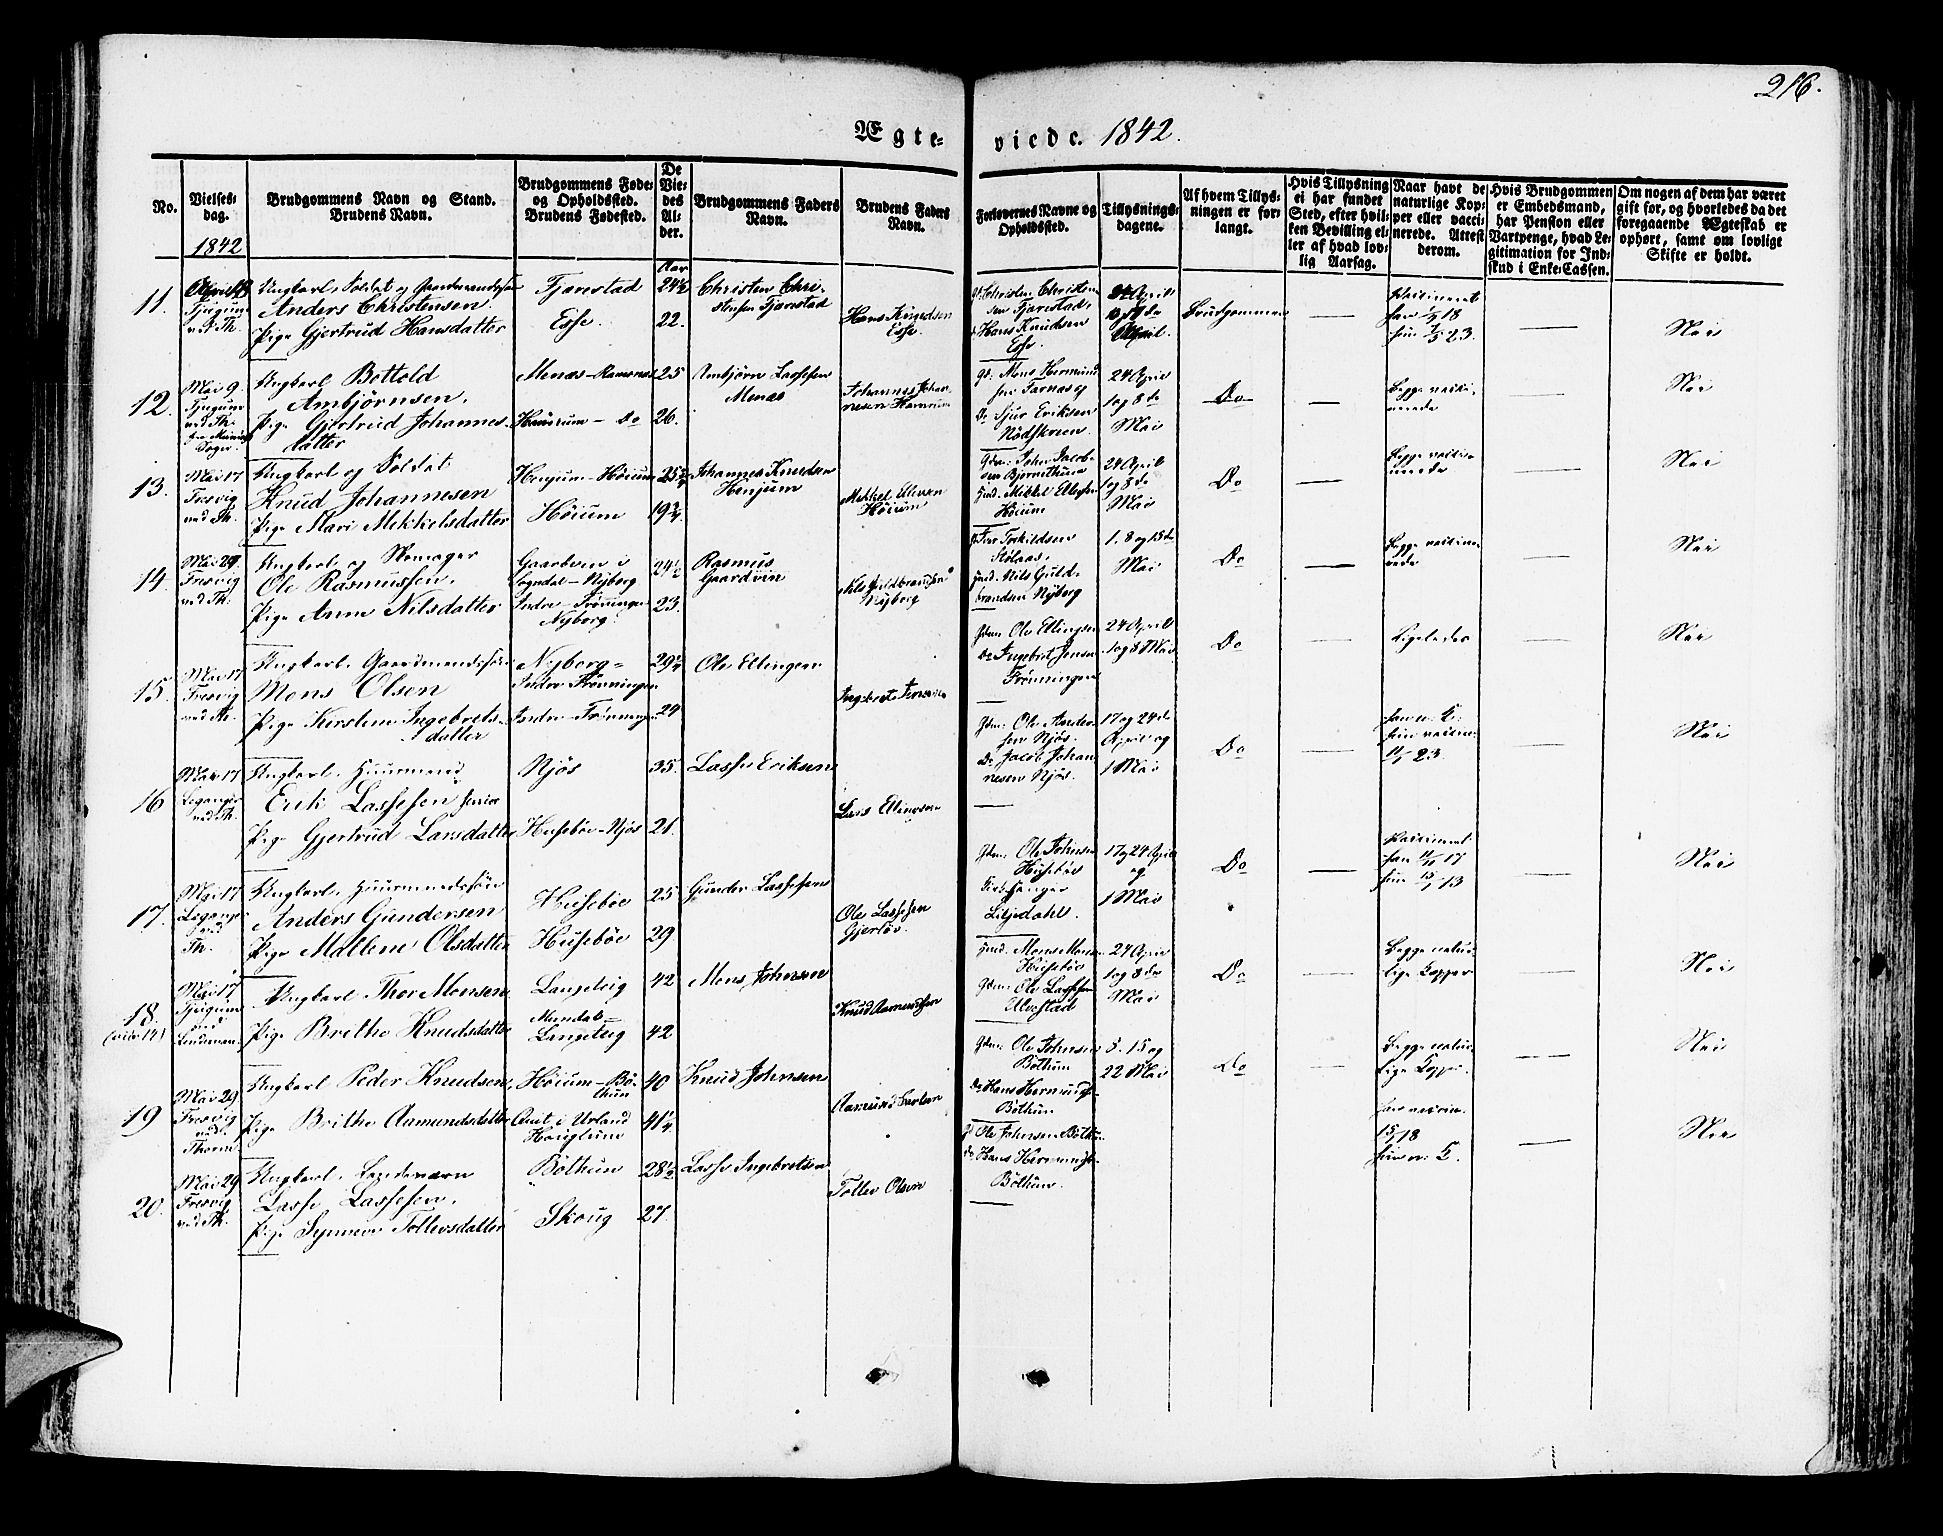 216.
Ægte-
viede. 1842.
No.
Vielses-
dag.
1842
Brudgommens Navn og Stand.
Brudens Navn.
Brudgommens Føde-
og Opholdssted.
Brudens Fødested.
De
Vie-
des
Al-
der.
Brudgommens Faders
Navn.
Brudens Faders
Navn.
Forlovernes Navne og
Opholdssted.
Tillysnings-
dagene.
Af hvem Tillys-
ningen er for-
langt.
Hvis Tillysning
ei har fundet
Sted, efter hvil-
ken Bevilling el-
ler af hvad lov-
lig Aarsag.
Naar havt de
naturlige Kop-
per eller vacci-
nerede. Attest
derom.
Hvis Brudgommen
er Embedsmand,
har Pension eller
Vartpenge, hvad Le-
gitimation for Ind-
skud i Enke-Cassen.
Om nogen af dem har været
gift før, og hvorledes da det
foregaaende Ægteskab er
ophørt, samt om lovlige
Skifte er holdt.
11.
Tjugum
ved Th.
Ungkarl, Soldat og
Anders Christensen
Pige Gjertrud Hansdatter
Tjarestad
Esse.
Aar
24½
22.
Christen Chri-
stensen Tjarestad
Hans Knudsen
Esse.
Christen Christen-
sen Tjarestad,
Hans Knudsen
Esse.
April
Brudgommen
—
Vaccineret
han 18
hun 23.
—
Nei
12.
Mai 9.
Tjugum
ved Th.
Ungkarl Bottold
Ambjørnsen,
Pige Gjertrud Johannes-
datter
Menæs - Ramnæs
Hamrum - Do
25
26.
Ambjørn Lassesen
Menæs
Johannes Johan-
nesen Hamrum
Mons Hermund-
sen Farnæs og
Do Sjur Eriksen
Nødskreen
24 April
1 og 8 de
Mai
Do
—
Begge vacci-
nerede
—
Nei
13.
Mai 17
Fresvig
ved Th.
Ungkarl og Soldat
Knud Johannesen
Pige Mari Mikkelsdatter
Henjum - Høium
Høium
25¾
19¾
Johannes Knudsen
Henjum
Mikkel Ellevsen
Høium
Gdm: John Jacob-
sen Bjørnethun
Mikkel Ellefsen
Høium
24 April
1 og 8 de
Mai
Do
—
Begge vacci-
nerede
—
Nei
14.
Mai 29.
Fresvig
ved Th.
Ungkarl og Skomager
Ole Rasmussen,
Pige Anne Nilsdatter
Gaarden i
Sogndal - Nyborg
Indre - Frønningen
Nyborg.
24½
23.
Rasmus
Gaarden
Nils Guldbrandsen
Nyborg
Torkildsen
Stølaas,
Nils Guld-
brandsen Nyborg
1. 8 og 15 de
Mai
Do
—
Begge vacci-
nerede
—
Nei
15.
Mai 17
Fresvig
ved Th.
Ungkarl, Gaardmandssøn
Mons Olsen
Pige Kirstene Ingebrets-
datter
Nyborg -
Indre Frønningen
Indre - Frønningen
29¼
24
Ole Ellingsen
Ingebret Jensen
Gdm: Ole Ellingsen
Do Ingebret Jensen
Frønningen
24 April
1 og 8 Mai
Do
—
Ligeledes
—
Nei
16
Mai 17
Leganger
ved Th.
Ungkarl, Huusmand
Erik Lassesen
Pige Gjertrud Larsdatter
Njøs
Husebøe - Njøs
35.
21.
Lasse Eriksen
Lars Ellingsen
Gdm: Ole Ander-
sen Njøs.
Do Jacob Johan-
nesen Njøs.
17 og 24 de
April og
1 Mai
Do
—
han n. K:
hun vaccine:
23.
—
Nei
17.
Mai 17
Leganger
ved
Th.
Ungkarl, Huusmandssøn
Anders Gundersen
Pige Mallene Olsdatter
Husebøe
Husebøe
25
29
Gunder Lassesen
Ole Lassesen
Gjerløv
Gdm: Ole Johnsen
Husebøe
Kirkesanger
Liljedahl.
17 og 24 April
og
1 Mai
Do
—
Vaccineret
han 17
hun 13
—
Nei
18.
Mai 17
Tjugum
ved
Lindeman.
Ungkarl Thor Monsen
Pige Brithe Knudsdatter
Langeteig
Mundal -
Langeteig
42
42
Mons Johnsen
Knud Aamundsen
Mons Monsen
Husebøe
Gdm: Ole Lassesen
Ellestad
24 April
1 og 8 de
Mai
Do
—
Begge natur-
lige Kopper
—
Nei
19
Mai 29
Fresvig
ved
Thorm.
Ungkarl Peder Knudsen
Pige Brithe Aamundsdatter
Høium - Bø-
thun
i Urland
40
41¼
Knud Johnsen
Aamund
Gdm: Ole Johnsen
Bøthun
Do Hans Hermunds-
Bøthun
8. 15 og
22 Mai
Do
—
Begge natur-
lige Kopper.
—
Nei
20.
Mai 29
Fresvig
ved Th.
Ungkarl, Landeværn
Lasse Lassesen,
Pige Synneve Tollevsdatter
Bøthun
Skoug
28½
27.
Lasse Ingebretsen
Tollev Olsen
Ole Johnsen Bøthun
do Hans Hermunds-
Bøthun.
han vaccin.
18
hun n: K.
—
Nei